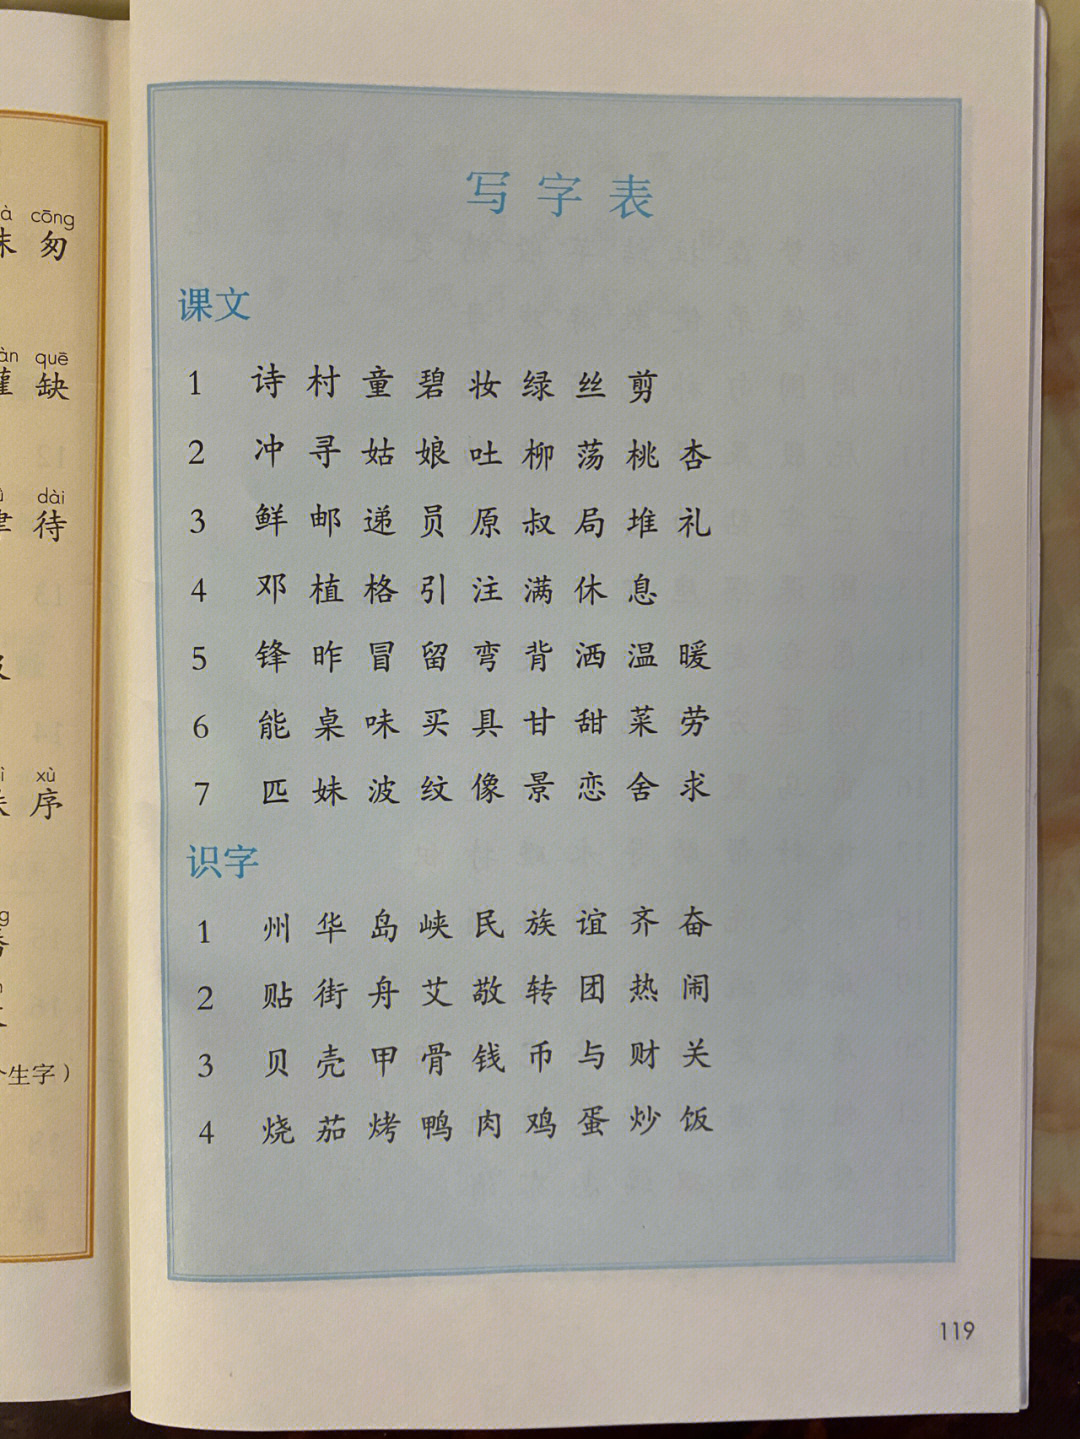 cōng
匆
quē
缺
dài
待
xù
序
个生字）
写字表
课文
1 诗村童碧妆绿丝剪
2 冲寻姑娘吐柳荡桃杏
3 鲜邮递员原叔局堆礼
4 邓植格引注满休息
5 锋昨冒留弯背洒温暖
6 能桌味买具甘甜菜劳
7 匹妹波纹像景恋舍求
识字
1 州华岛峡民族谊齐奋
2 贴街舟艾敬转团热闹
3 贝壳甲骨钱币与财关
4 烧茄烤鸭肉鸡蛋炒饭
119